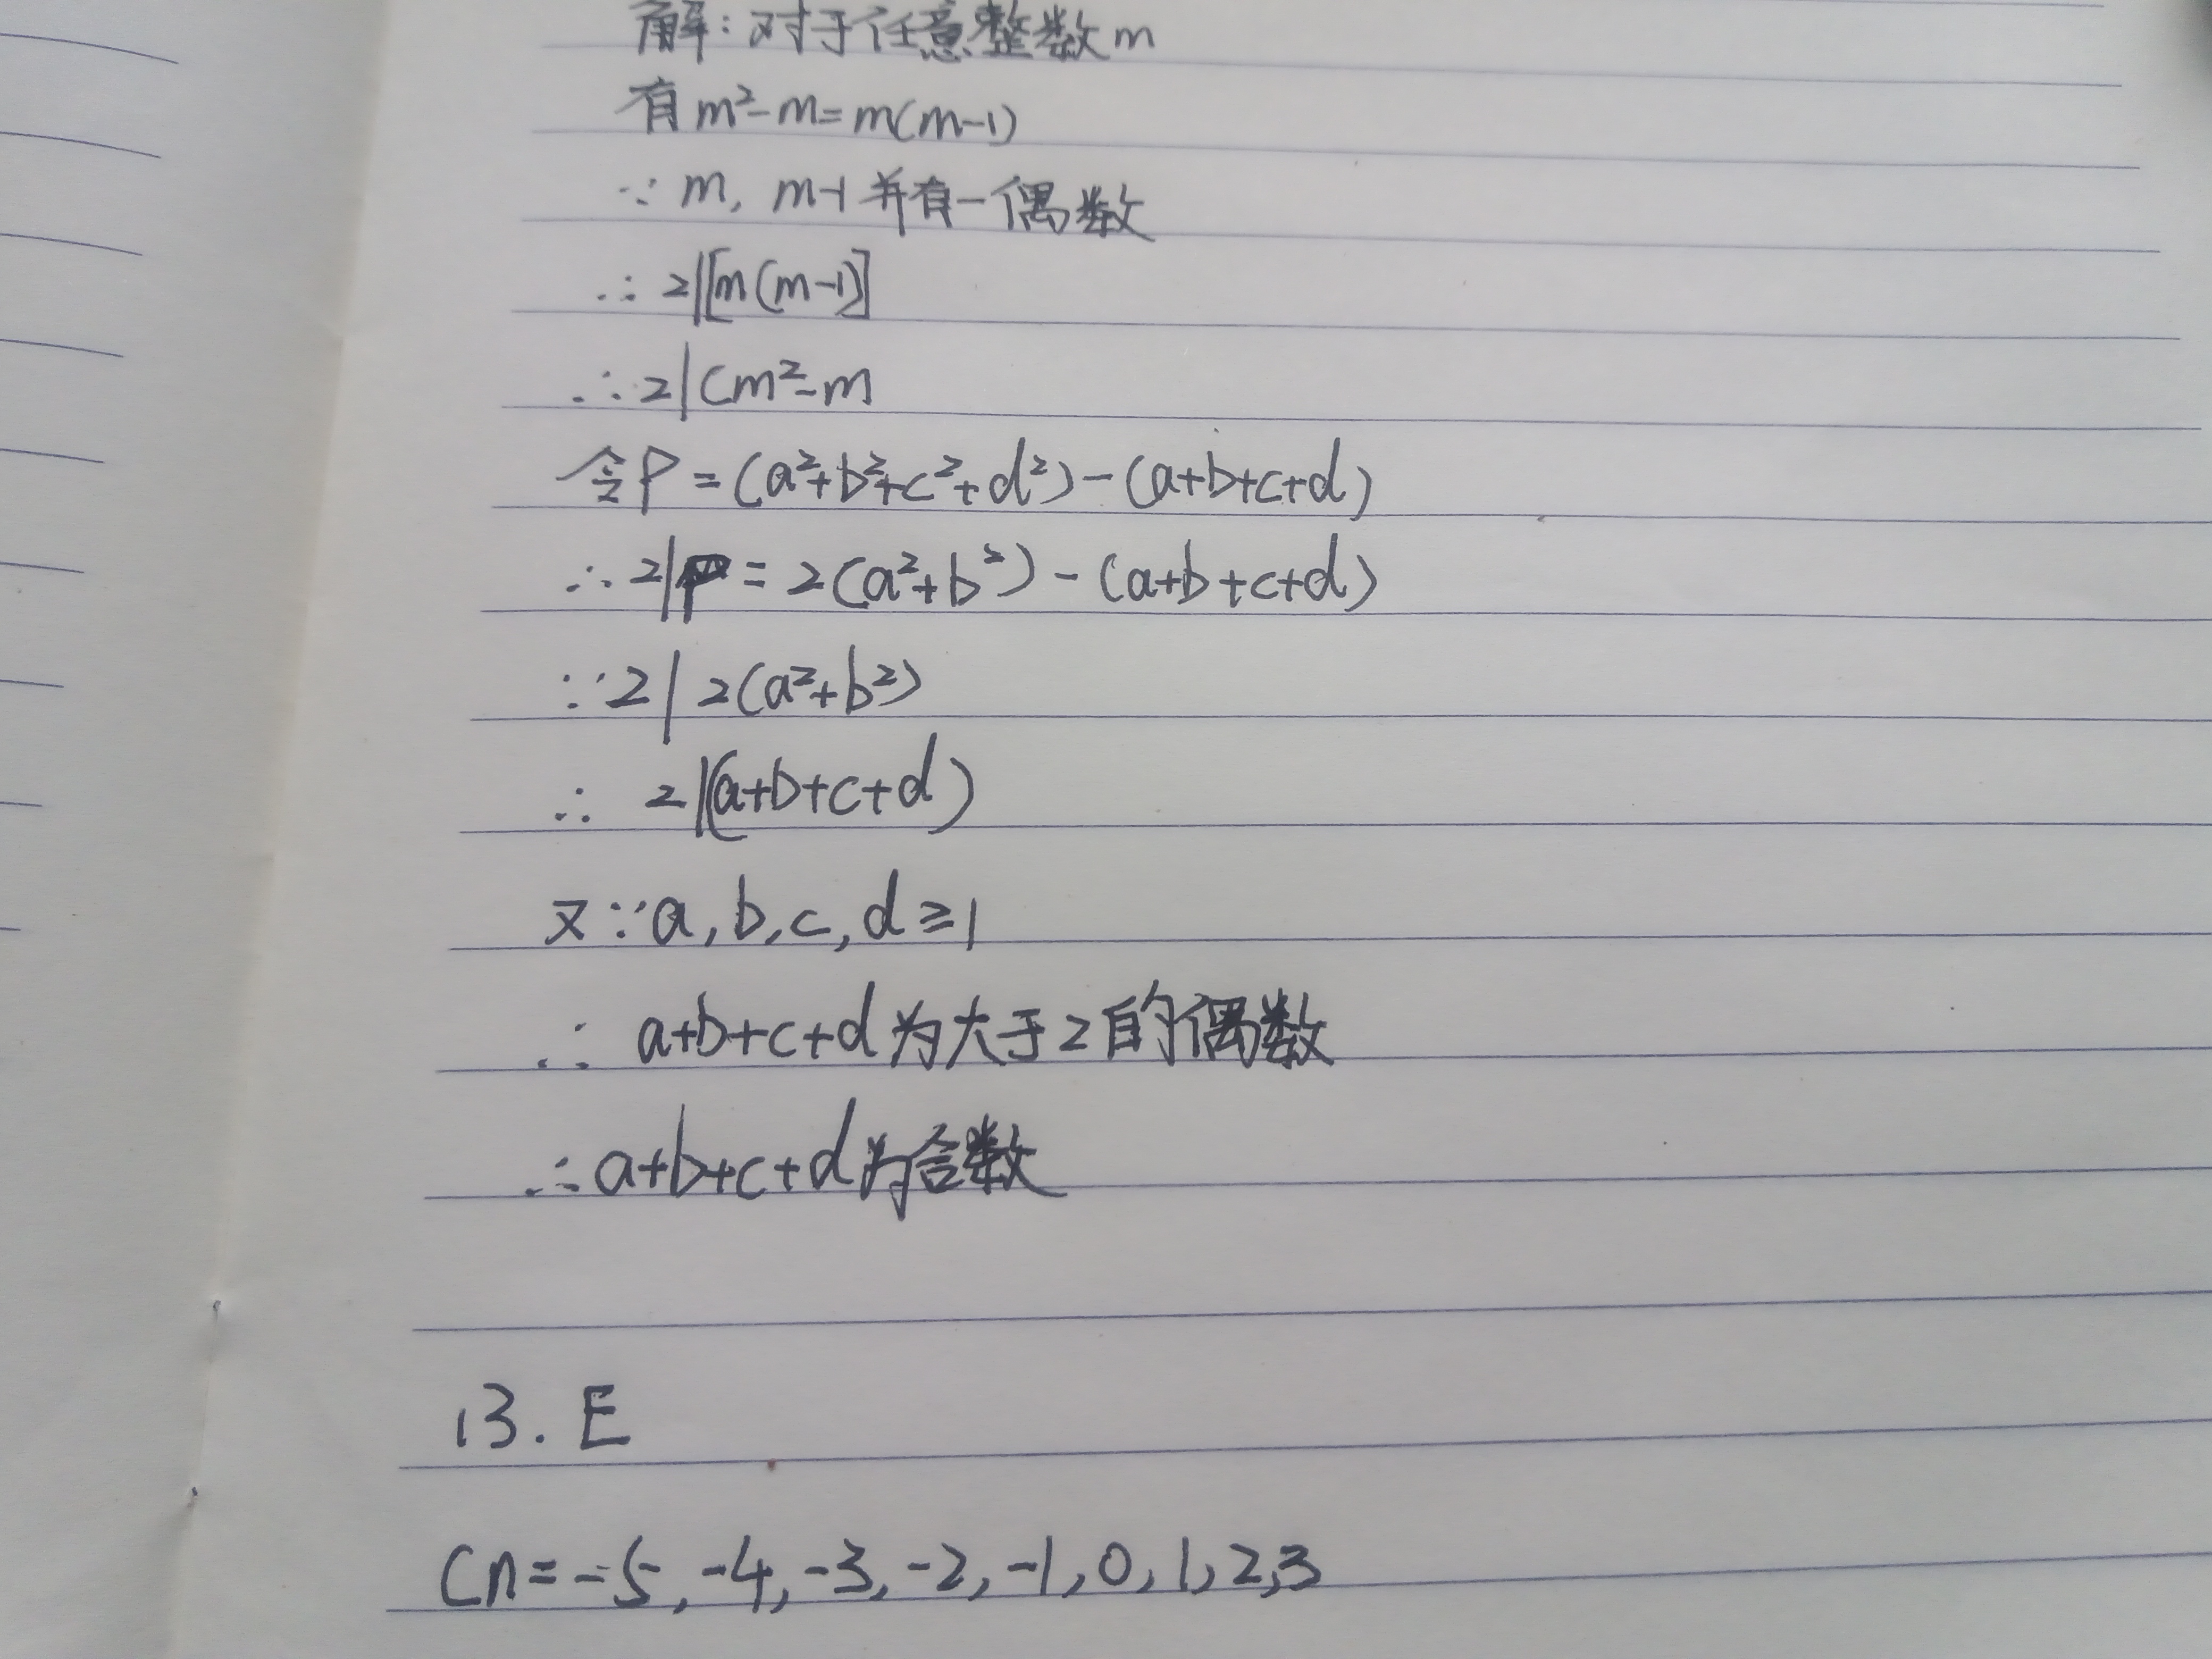 解：对于任意整数m
有m²-m=m(m-1)
∵ m, m-1并有一偶数
∴ 2|[m(m-1)]
∴ 2|(m²-m
令P=(a²+b²+c²+d²)-(a+b+c+d)
∴ 2|P=2(a²+b²)-(a+b+c+d)
∵ 2|2(a²+b²)
∴ 2|(a+b+c+d)
又∵a,b,c,d≥1
∴ a+b+c+d为大于2的偶数
∴ a+b+c+d为合数
13. E
Cn=-5,-4,-3,-2,-1,0,1,2,3